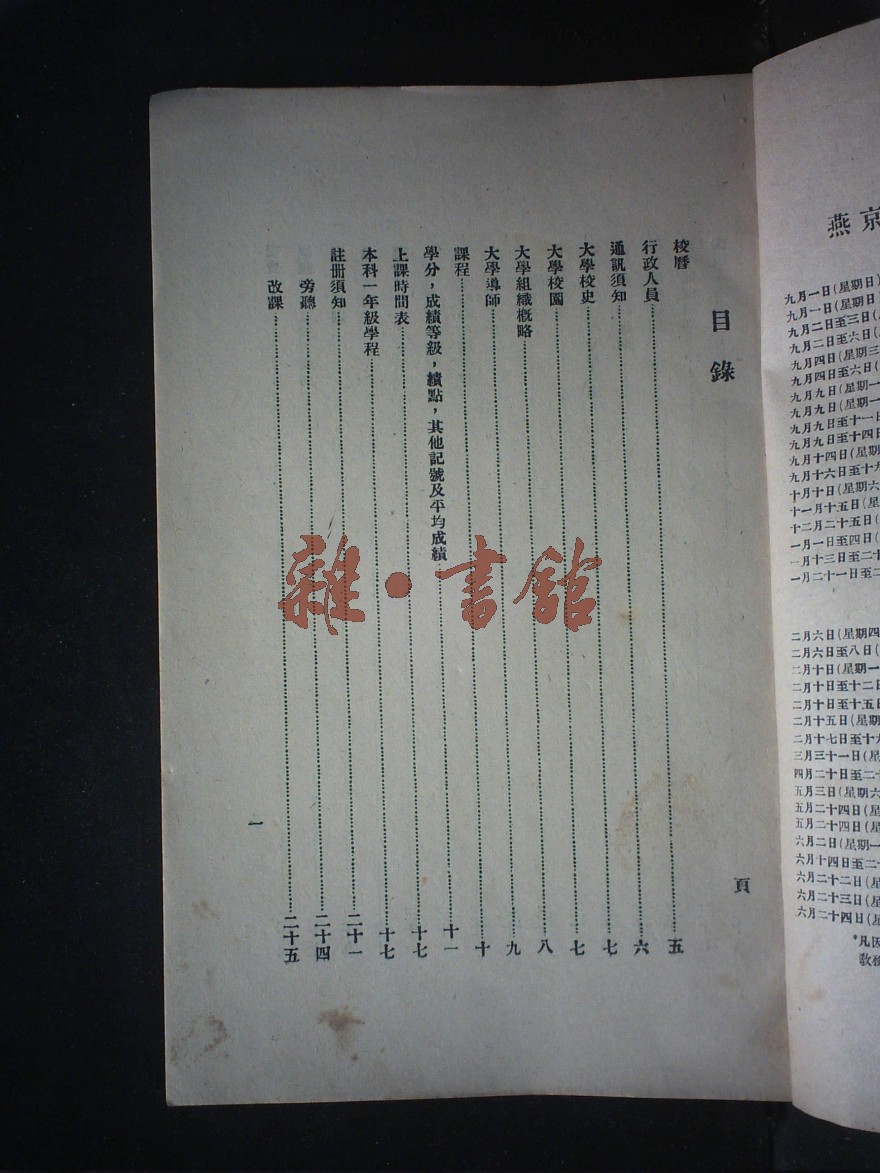 目錄
頁
校曆
行政人員……五
通訊須知……六
大學校史……七
大學校園……七
大學組織概略……八
大學導師……九
課程……十
學分，成績等級，績點，其他記號及平均成績……十一
上課時間表……十七
本科一年級學程……十七
註冊須知……二十一
旁聽……二十四
改課……二十五
一
雜·書館
燕京
九月一日(星期日)
九月一日(星期日
九月二日至三日(
九月二日至六日(
九月四日(星期三
九月四日至六日(
九月九日(星期一
九月九日(星期一
九月九日至十一日
九月九日至十四日
九月十四日(星期
九月十六日至十
十月十日(星期六
十一月十五日(星
十二月二十五日(
一月一日至四日(
一月十三日至二十
一月二十一日至二
二月六日(星期四
二月六日至八日(
二月十日(星期一
二月十日至十二日
二月十日至十五日
二月十五日(星期
二月十七日至十
三月三十一日(星
四月二十日至二十
五月三日(星期六
五月二十四日(星
五月二十四日(星
六月二日(星期一
六月十四日至二十
六月二十二日(星
六月二十三日(星
六月二十四日(星
*凡因
教務